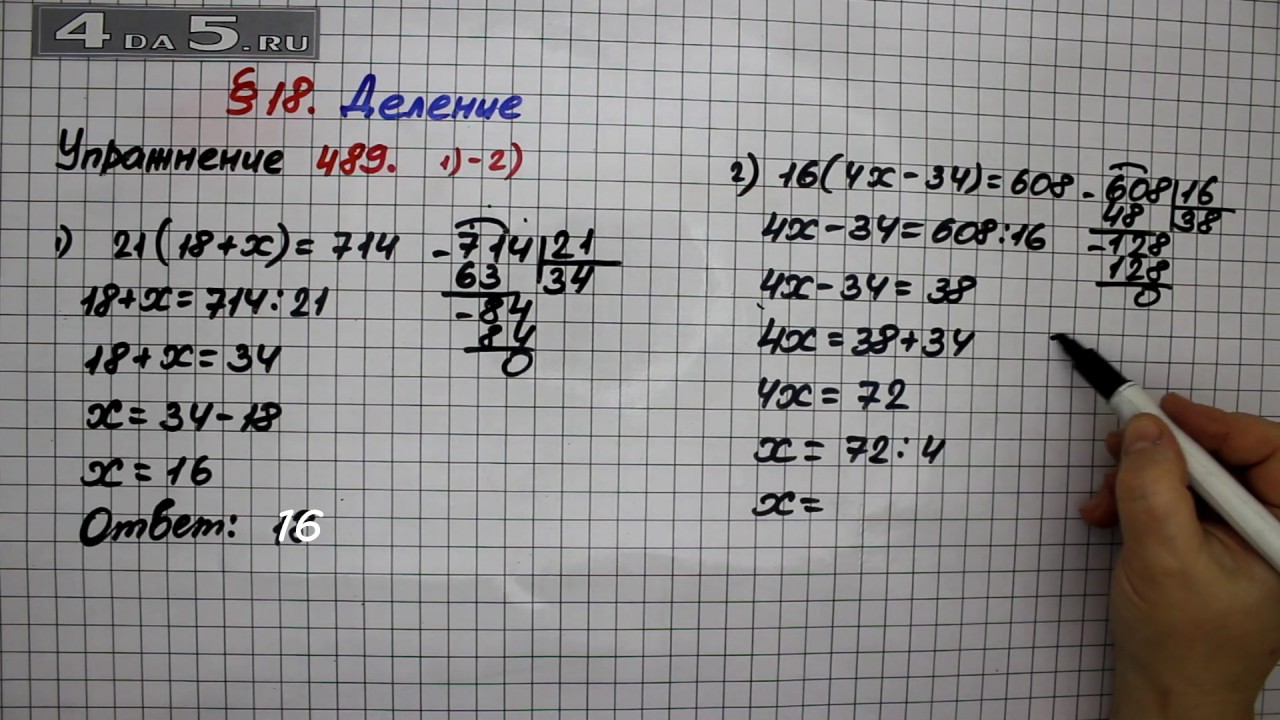 4 DA 5.RU
§ 18. Деление
Упражнение 489. 1)-2)
1) 21(18+x)=714
18+x=714:21
18+x=34
x=34-18
x=16
Ответ: 16
-714 21
63 34
-84
84
0
2) 16(4x-34)=608
4x-34=608:16
4x-34=38
4x=38+34
4x=72
x=72:4
x=
-608 16
48 38
-128
128
0